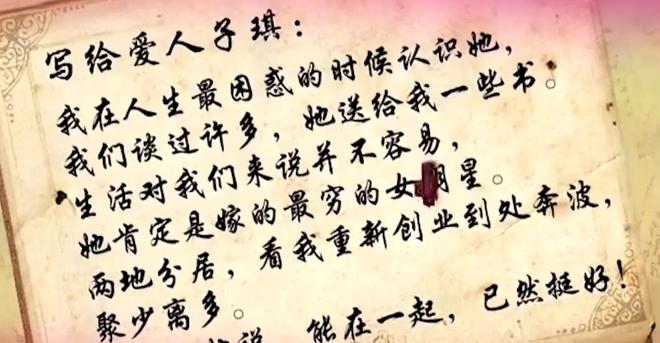 写给爱人子琪：
我在人生最困惑的时候认识她，
我们谈过许多，她送给我一些书。
生活对我们来说并不容易，
她肯定是嫁的最穷的女明星。
两地分居，看我重新创业到处奔波，
聚少离多。
说 能在一起，已然挺好！